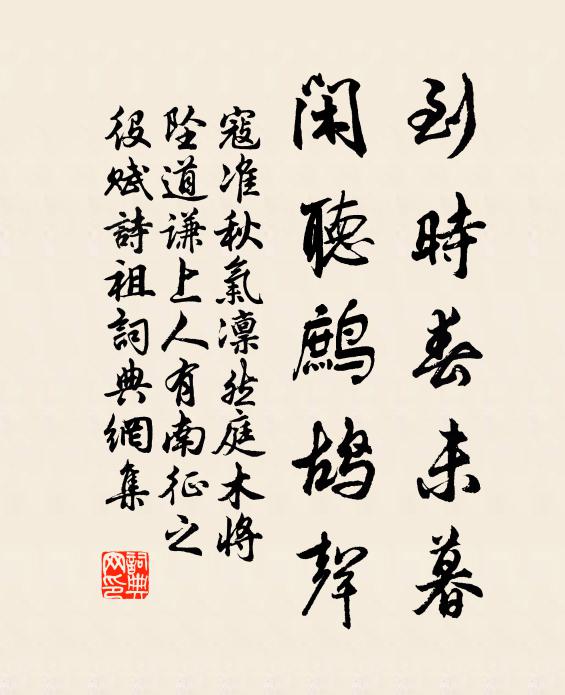 到時春未暮
閑聽鷓鴣聲
寇准秋氣凜然庭木將
墜道謙上人有南征之
役賦詩祖詞典網集
詞典网印